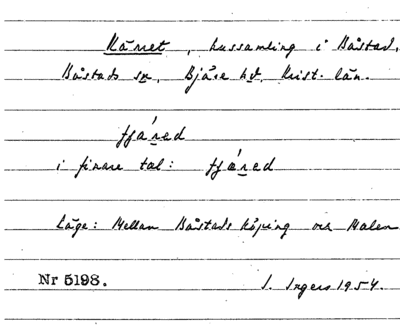 Kärret, hussamling i Båstad,
Båstads sn, Bjäre hd. Krist. län.
i finare tal:
Läge: Mellan Båstads köping och Malen
Nr 5198.
I. Ingers 1954.